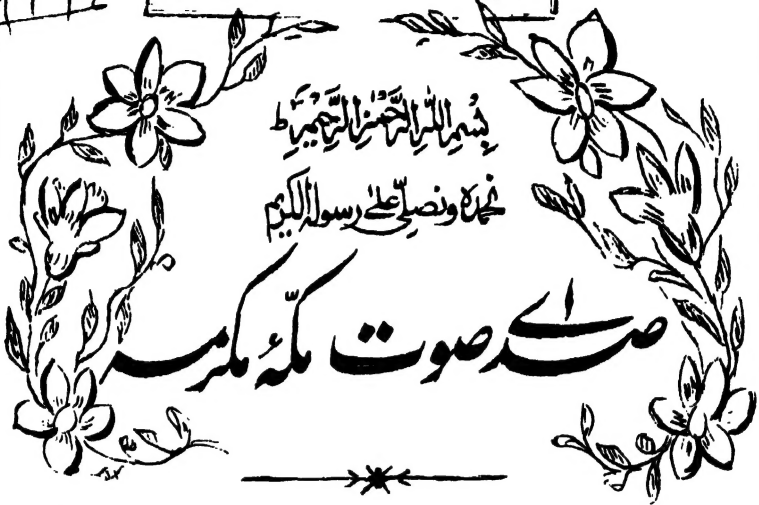 بِسْمِ اللّٰهِ الرَّحْمٰنِ الرَّحِيْمِ ط
نحمدہ و نصلّی علٰی رسولہ الکریم
صدائے صوت مکّۂ مکرمہ